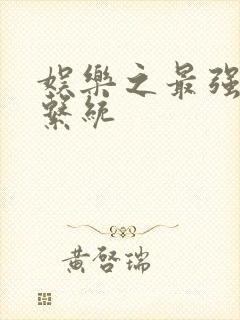 娛樂之最强
繫統
黃啓瑞